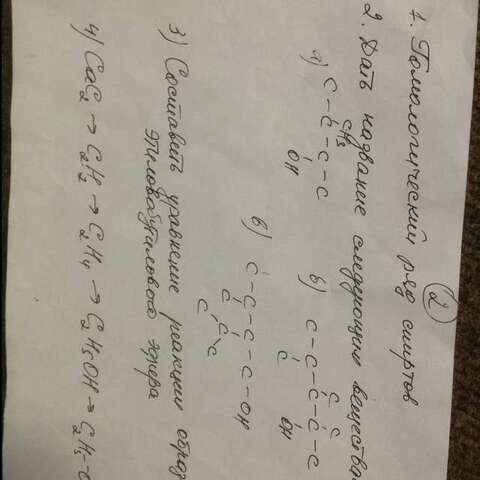 (2)
1. Гомологический ряд спиртов
2. Дать название следующим вещества
CH3
а) C-C-C-C
OH
C C
б) C-C-C-C-C
C OH
в) C-C-C-C-OH
C
C
C C
3) Составить уравнение реакции образ
этилового эфира
4) CaC2 → C2H2 → C2H4 → C2H5OH → C2H5-O